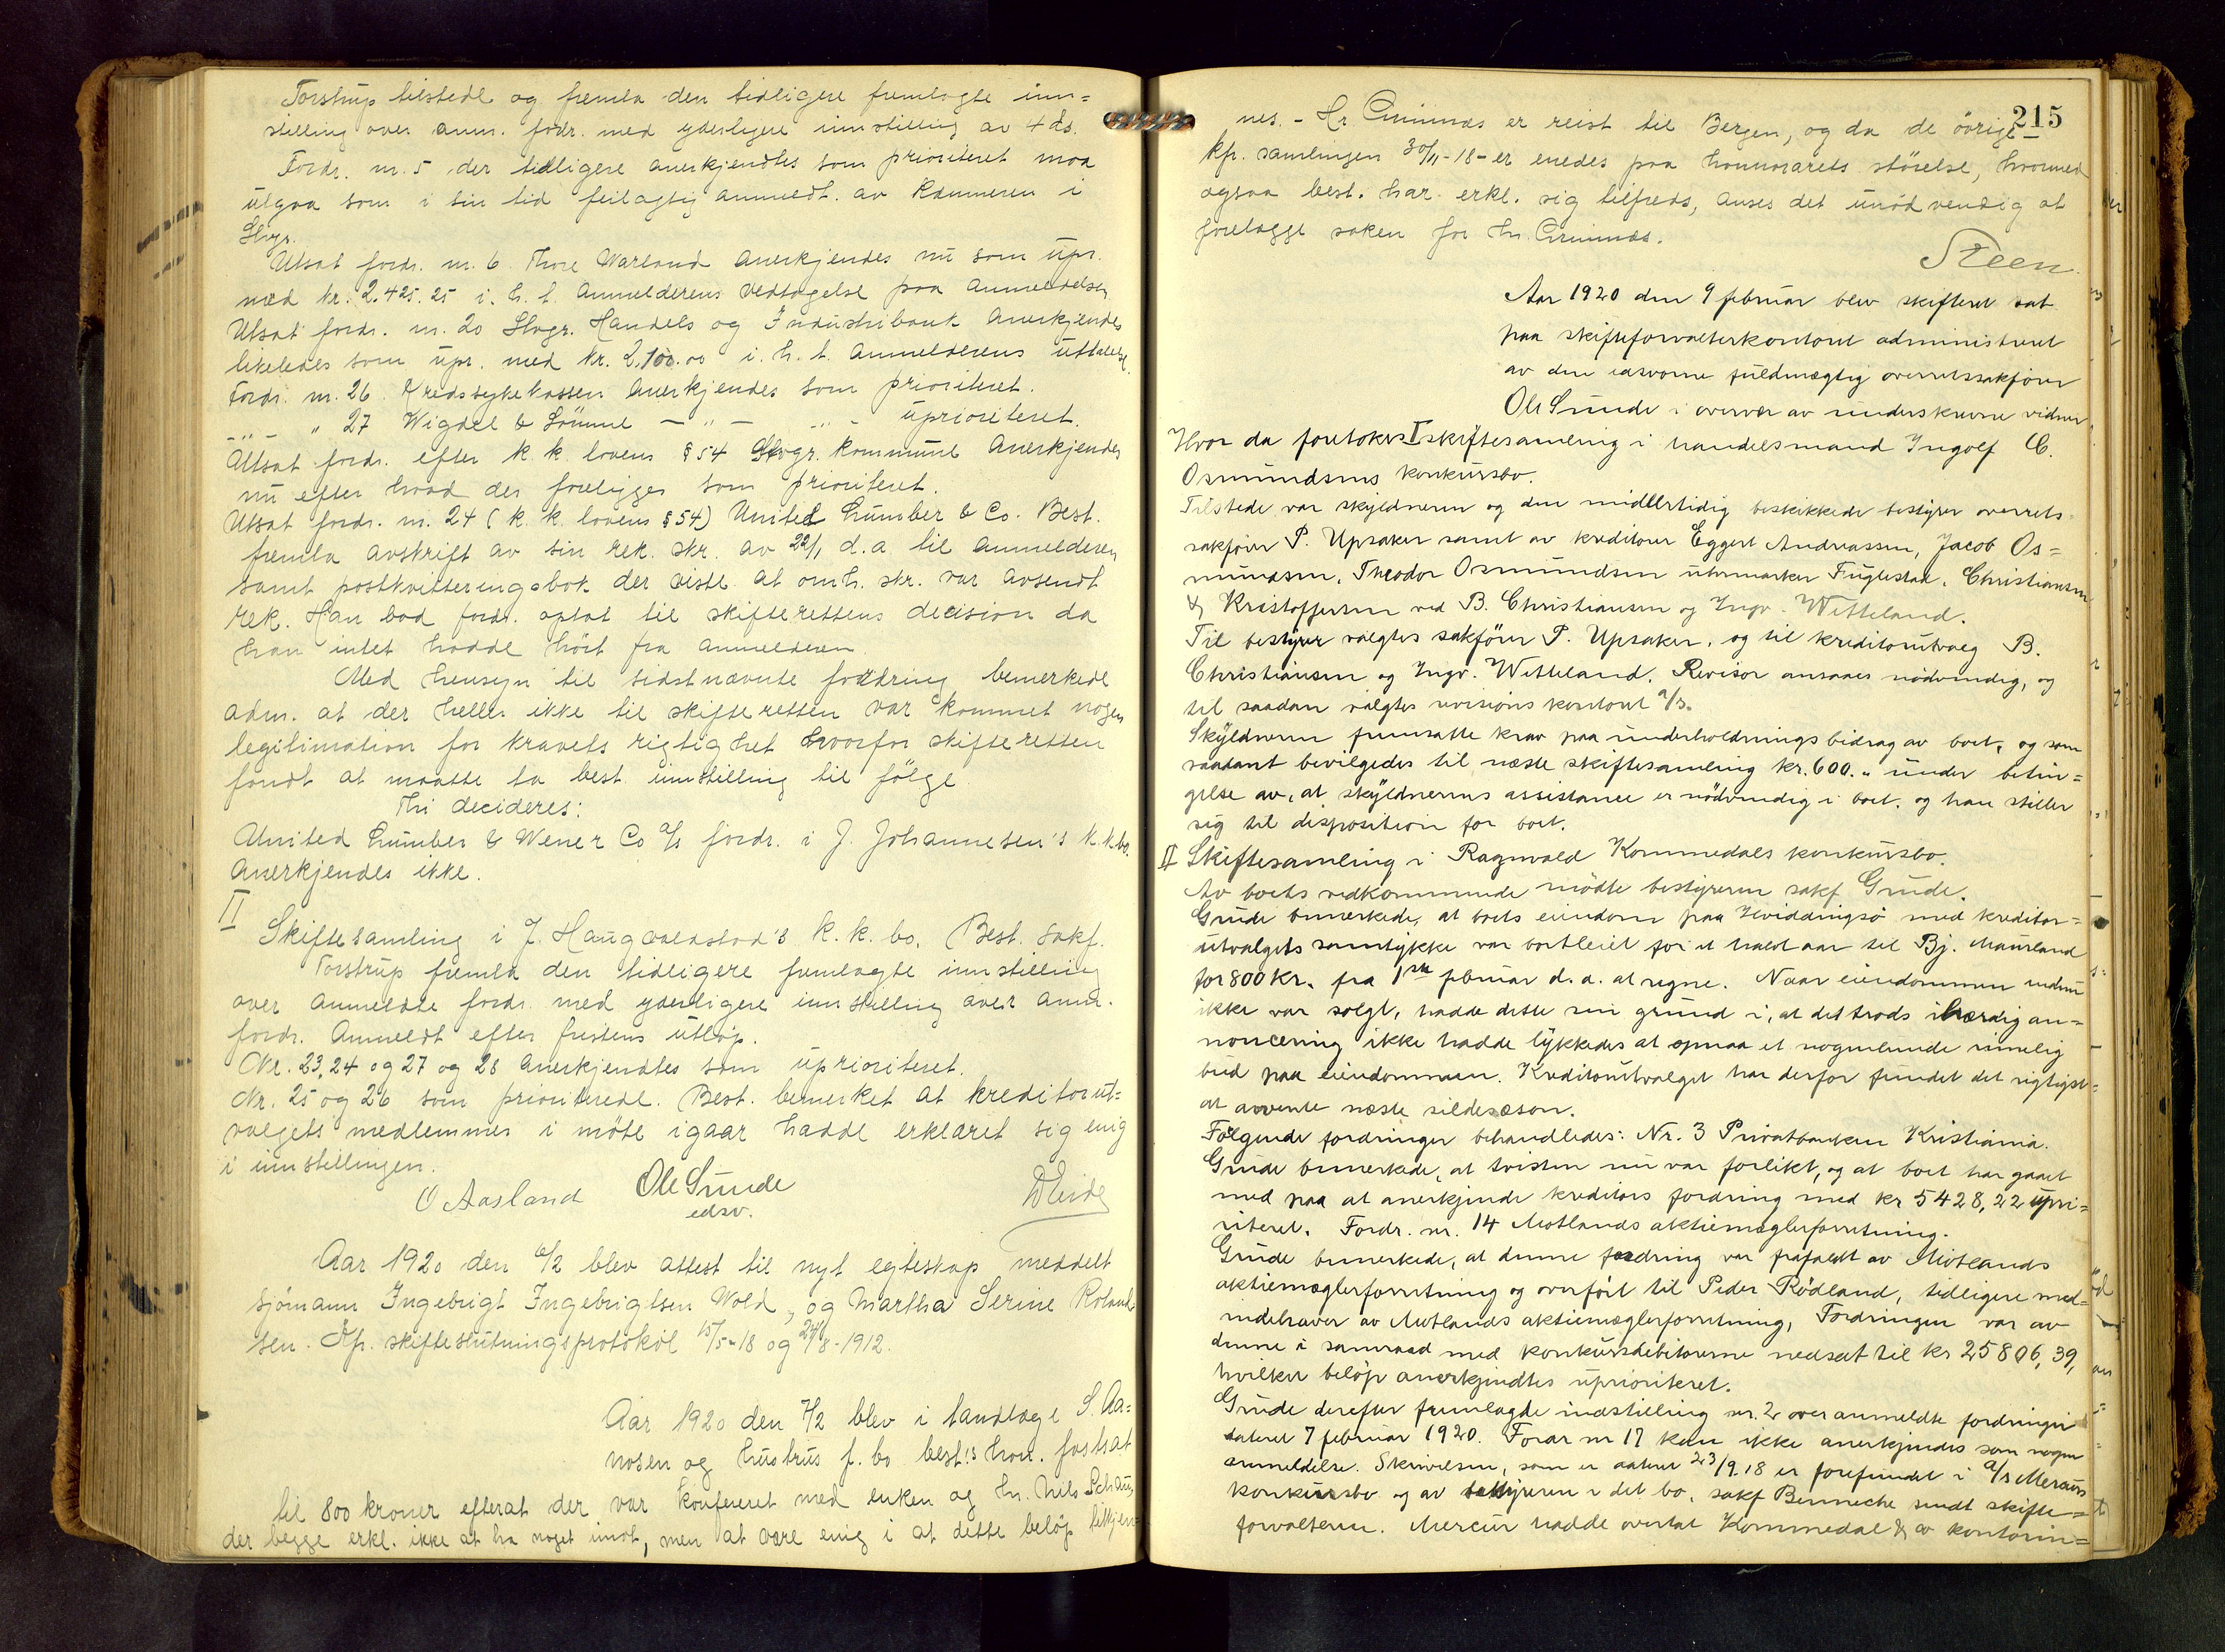 Torstrup tilstede og fremla den tidligere fremlagte inn=
stilling over anm. fordr. med yderligere innstilling av 4 ds.
Fordr. nr. 5 der tidligere anerkjendtes som prioriteret maa
utgaa som i sin tid feilagtig anmeldt. av kæmneren i
Stvgr.
Utsat fordr. nr. 6. Thore Warland anerkjendes nu som upr.
med kr. 2.425.25 i. h. t. anmelderens vedtagelse paa anmeldelsen
Utsat fordr. nr. 20 Stvgr. Handels og Industribank anerkjendes
likeledes som upr. med kr. 2.100.00 i. h. t. anmelderens uttalelse.
Fordr. nr. 26 Kredssykekassen anerkjendes som prioriteret.
- „ - „ 27 Wigdel & Sömme - „ - - „ - uprioriteret.
Utsat fordr. efter k. k. lovens § 54 Stvgr. kommune anerkjendes
nu efter hvad der foreligger som prioriteret.
Utsat fordr. nr. 24 (k. k. lovens § 54) United Lumber & Co. Best.
fremla avskrift av sin rek. skr. av 22/1 d.a til anmelderen
samt postkvitteringsbok der viste at omh. skr. var avsendt
rek. Han bad fordr. optat til skifterettens decision da
han intet hadde hört fra anmelderen.
Med hensyn til sidstnævnte fordring bemerkede
adm. at der heller ikke til skifteretten var kommet nogen
legitimation for kravets rigtighet hvorfor skifteretten
fandt at maatte ta best. innstilling til fölge
Thi decideres:
United Lumber & Wener Co A/s fordr. i J. Johannesen's k.k.bo.
anerkjendes ikke.
II
Skiftesamling i J. Haugvaldstad's k. k. bo. Best. sakf.
Torstrup fremla den tidligere fremlagte innstilling
over anmeldte fordr. med yderligere innstilling over anm.
fordr. anmeldt efter fristens utløp.
Nr. 23, 24 og 27 og 28 anerkjendtes som uprioriteret.
Nr. 25 og 26 som prioriterede. Best. bemerket at kreditorut=
valgets medlemmer i möte igaar hadde erklæret sig enig
i innstillingen.
O Aasland Ole Sunde
edsv.
Aar 1920 den 6/2 blev attest til nyt egteskap meddelt
sjömann Ingebrigt Ingebrigtsen Wold, og Martha Serine Roland
sen. Kfr. skifteslutningsprotokol 15/5-18 og 24/8-1912.
Aar 1920 den 7/2 blev i landlæge S. Aa=
nesen og hustrus f. bo best!s hon. fastsat
til 800 kroner efterat der var konfereret med enken og hr. Nils Schau,
der begge erkl. ikke at ha noget imot, men at være enig i at dette belöp tilkjen=
215
nes. - Hr Grimnæs er reist til Bergen, og da de övrige -
kfr. samlingen 30/11-18 - er enedes paa honnorarets störelse, hvormed
ogsaa best. har erkl. sig tilfreds, anses det unödvendig at
forelægge saken for hr. Grimnæs.
Steen.
Aar 1920 den 9 februar blev skifteret sat
paa skifteforvalterkontoret administreret
av den edsvorne fuldmægtig overretssakförer
Ole Sunde i overvær av underskrevne vidner,
Hvor da foretokes I skiftesamling i handelsmand Ingolf C.
Osmundsens konkursbo.
Tilstede var skyldneren og den midlertidig beskikkede bestyrer overrets
sakförer P. Upsaker samt av kreditorer Eggert Andreassen, Jacob Os=
mundsen, Theodor Osmundsen utenmarker Fuglestad, Christiansen
& Kristoffersen ved B. Christiansen og Ingv. Wetteland.
Til bestyrer valgtes sakförer P. Upsaker, og til kreditorutvalg B.
Christiansen og Ingv. Wetteland. Revisor ansaaes nödvendig, og
til saadan valgtes revisions kontoret A/S.
Skyldneren fremsatte krav paa underholdningsbidrag av boet, og som
saadant bevilgedes til næste skiftesamling kr. 600.„ under betin=
gelse av, at skyldnerens assistance er nödvendig i boet, og han stiller
sig til disposition for boet.
II Skiftesamling i Ragnvald Kommedals konkursbo.
Av boets vedkommende mödte bestyreren sakf. Grude.
Grude bemerkede, at boets eiendom paa Hviddingsö med kreditor=
utvalgets samtykke var bortleiet for et halvt aar til Bj. Maurland
for 800 kr. fra 1ste februar d. a. at regne. Naar eiendommen endnu
ikke var solgt, hadde dette sin grund i, at det trods ihærdig an=
noncering ikke hadde lykkedes at opnaa et nogenlunde rimelig
bud paa eiendommen. Kreditorutvalget har derfor fundet det rigtigst=
at avvente næste sildesæson.
Fölgende fordringer behandledes: Nr. 3 Privatbanken Kristiania.
Grude bemerkede, at tvisten nu var forlikt, og at boet har gaaet
med paa at anerkjende kreditors fordring med kr 5428,22 upri=
riteret. Fordr. nr. 14 Motlands aktiemæglerforretning.
Grude bemerkede, at denne fordring var frafaldt av Motlands
aktiemæglerforretning og overfört til Peder Rödland, tidligere med=
indehaver av Motlands aktiemæglerforretning, Fordringen var av
denne i samraad med konkursdebitorerne nedsat til kr 25806,39,
hvilket belöp anerkjendtes uprioriteret.
Grude derefter fremlagde indstilling nr. 2 over anmeldte fordringer
dateret 7 februar 1920. Fordr nr 17 kan ikke anerkjendes som nogen
anmeldelse. Skrivelsen, som er dateret 23/9 18 er forefundet i A/s Mercurs
konkursbo og av bestyreren i det bo, sakf Benneche sendt skifte=
forvalteren. Mercur hadde overtat Kommedal & co kontorin=